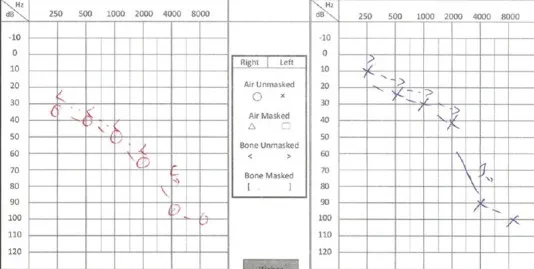 Hz
dB
250 500 1000 2000 4000 8000
-10
0
10
20
30
40
50
60
70
80
90
100
110
120
Right Left
Air Unmasked
○ ×
Air Masked
△ □
Bone Unmasked
< >
Bone Masked
[ ]
Hz
dB
250 500 1000 2000 4000 8000
-10
0
10
20
30
40
50
60
70
80
90
100
110
120